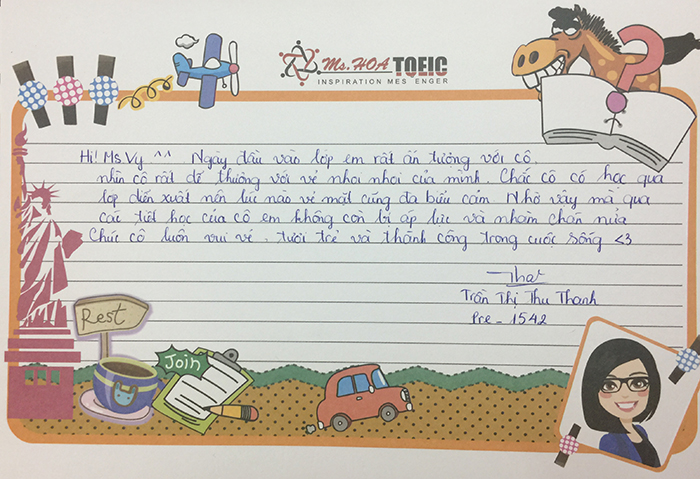 Ms. HOA TOEIC
INSPIRATION MES ENGER
Hi! Ms Vy ^^ Ngày đầu vào lớp em rất ấn tượng với cô,
nhìn cô rất dễ thương với vẻ nhoi nhoi của mình. Chắc cô có học qua
lớp diễn xuất nên lúc nào vẻ mặt cũng đa biểu cảm. Nhờ vậy mà qua
các tiết học của cô em không còn bị áp lực và nhàm chán nữa
Chúc cô luôn vui vẻ, tươi trẻ và thành công trong cuộc sống <3
Trần Thị Thu Thanh
Pre - 1542
Rest
Join
?